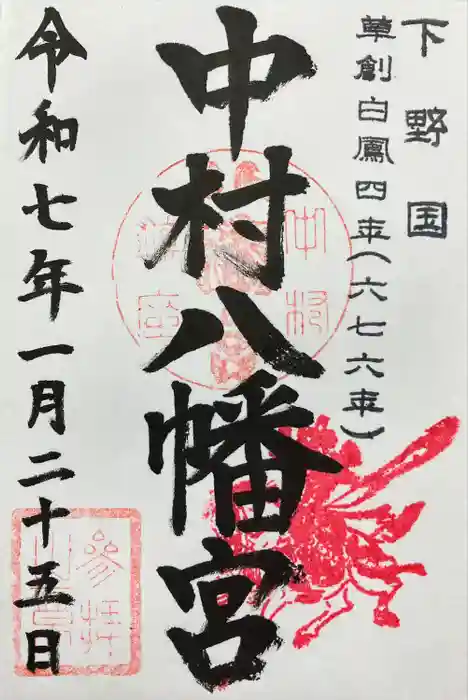 下野国
草創白鳳四年(六七六年)
中村八幡宮
令和七年一月二十五日
参拝